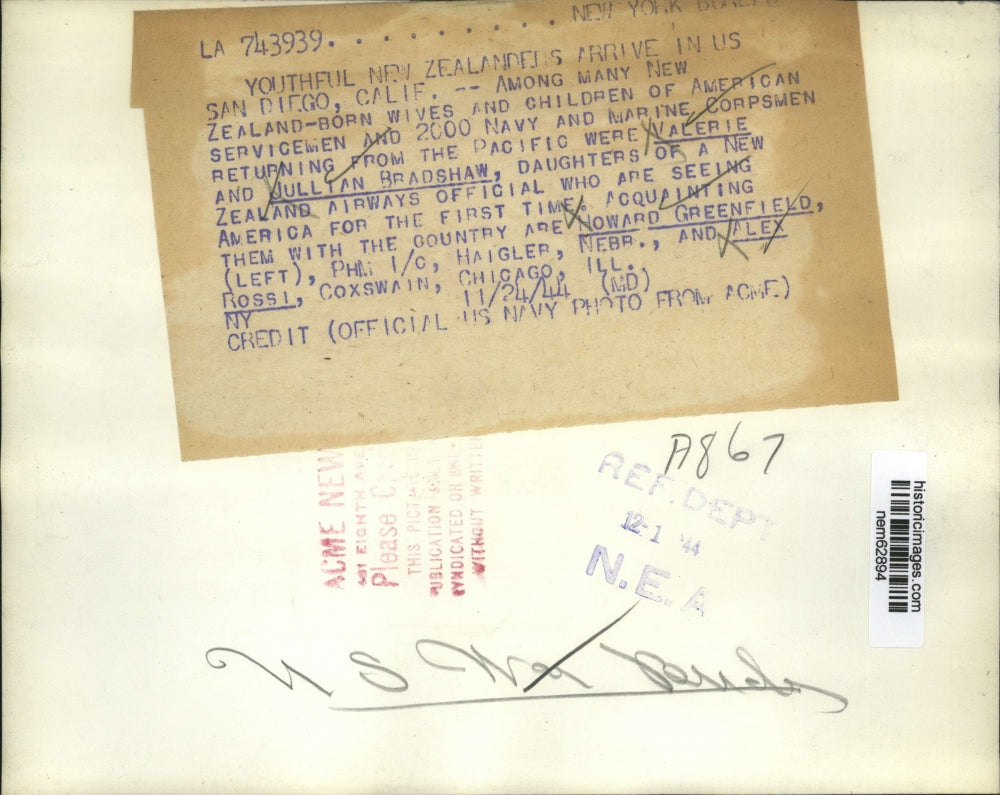 LA 743939. . . . . . . . . . NEW YORK BUREAU
YOUTHFUL NEW ZEALANDERS ARRIVE IN US
SAN DIEGO, CALIF. -- AMONG MANY NEW
ZEALAND-BORN WIVES AND CHILDREN OF AMERICAN
SERVICEMEN AND 2000 NAVY AND MARINE CORPSMEN
RETURNING FROM THE PACIFIC WERE VALERIE
AND JULLIAN BRADSHAW, DAUGHTERS OF A NEW
ZEALAND AIRWAYS OFFICIAL WHO ARE SEEING
AMERICA FOR THE FIRST TIME. ACQUAINTING
THEM WITH THE COUNTRY ARE HOWARD GREENFIELD,
(LEFT), PHM 1/C, HAIGLER, NEBR., AND ALEX
ROSSI, COXSWAIN, CHICAGO, ILL.
NY 11/24/44 (MD)
CREDIT (OFFICIAL US NAVY PHOTO FROM ACME)
A867
REF. DEPT
12-1 '44
N.E.A
ACME NEW
461 EIGHTH AVE
Please
THIS PICT
PUBLICATION
SYNDICATED OR USE
WITHOUT WRITTEN
historicimages.com
nem62894
U S War Brides